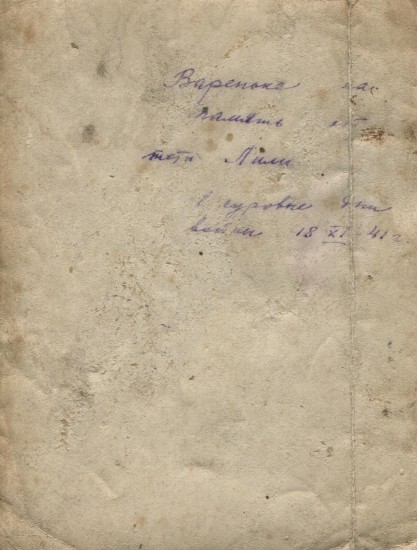 Вареньке на
память от
тети Лили
в суровые дни
войны 18 XI - 41 г